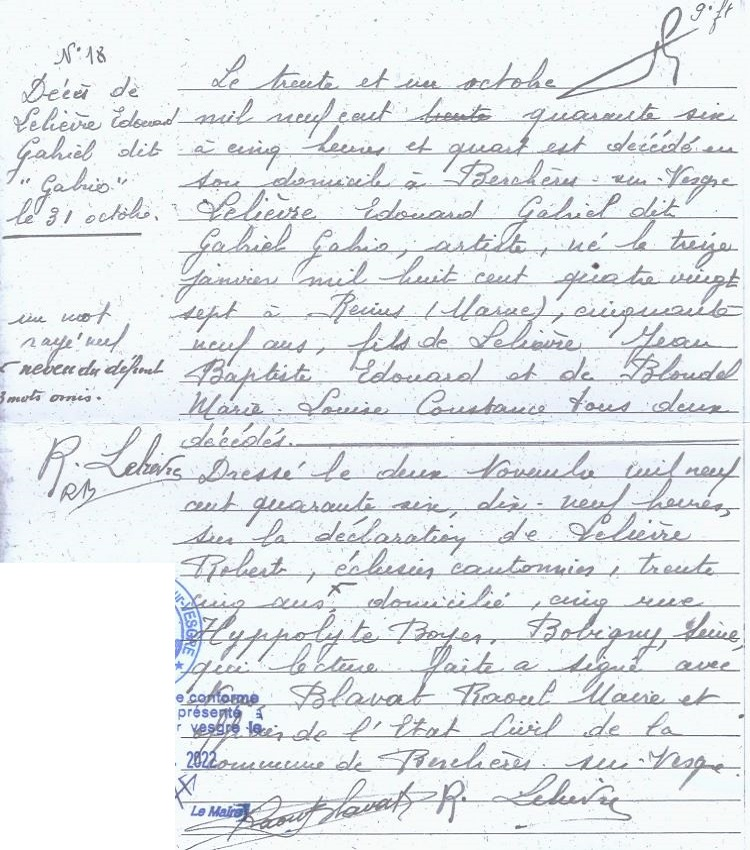 9 ft
N° 18
Décès de
Lelièvre Edouard
Gabriel dit
"Gabrio"
le 31 octobre.
un mot
rayé nul
neveu du défunt
3 mots omis.
R. Lelièvre
RB
Le trente et un octobre
mil neuf cent trente quarante six
à cinq heures et quart est décédé en
son domicile à Berchères-sur-Vesgre
Lelièvre Edouard Gabriel dit
Gabriel Gabrio, artiste, né le treize
janvier mil huit cent quatre vingt
sept à Reims (Marne), cinquante
neuf ans, fils de Lelièvre Jean
Baptiste Edouard et de Blondel
Marie-Louise Constance tous deux
décédés.
Dressé le deux Novembre mil neuf
cent quarante six, dix-neuf heures,
sur la déclaration de Lelièvre
Robert, éclusier cantonnier, trente
cinq ans, domicilié, cinq rue
Hyppolyte Boyer, Bobigny, Seine,
qui lecture faite a signé avec
Nous, Blavat Raoul Maire et
officier de l'Etat Civil de la
commune de Berchères-sur-Vesgre.
Raoul Blavat R. Lelièvre
ur-VESGRE
e conforme
présenté à
r vesgre le
2022
Le Maire